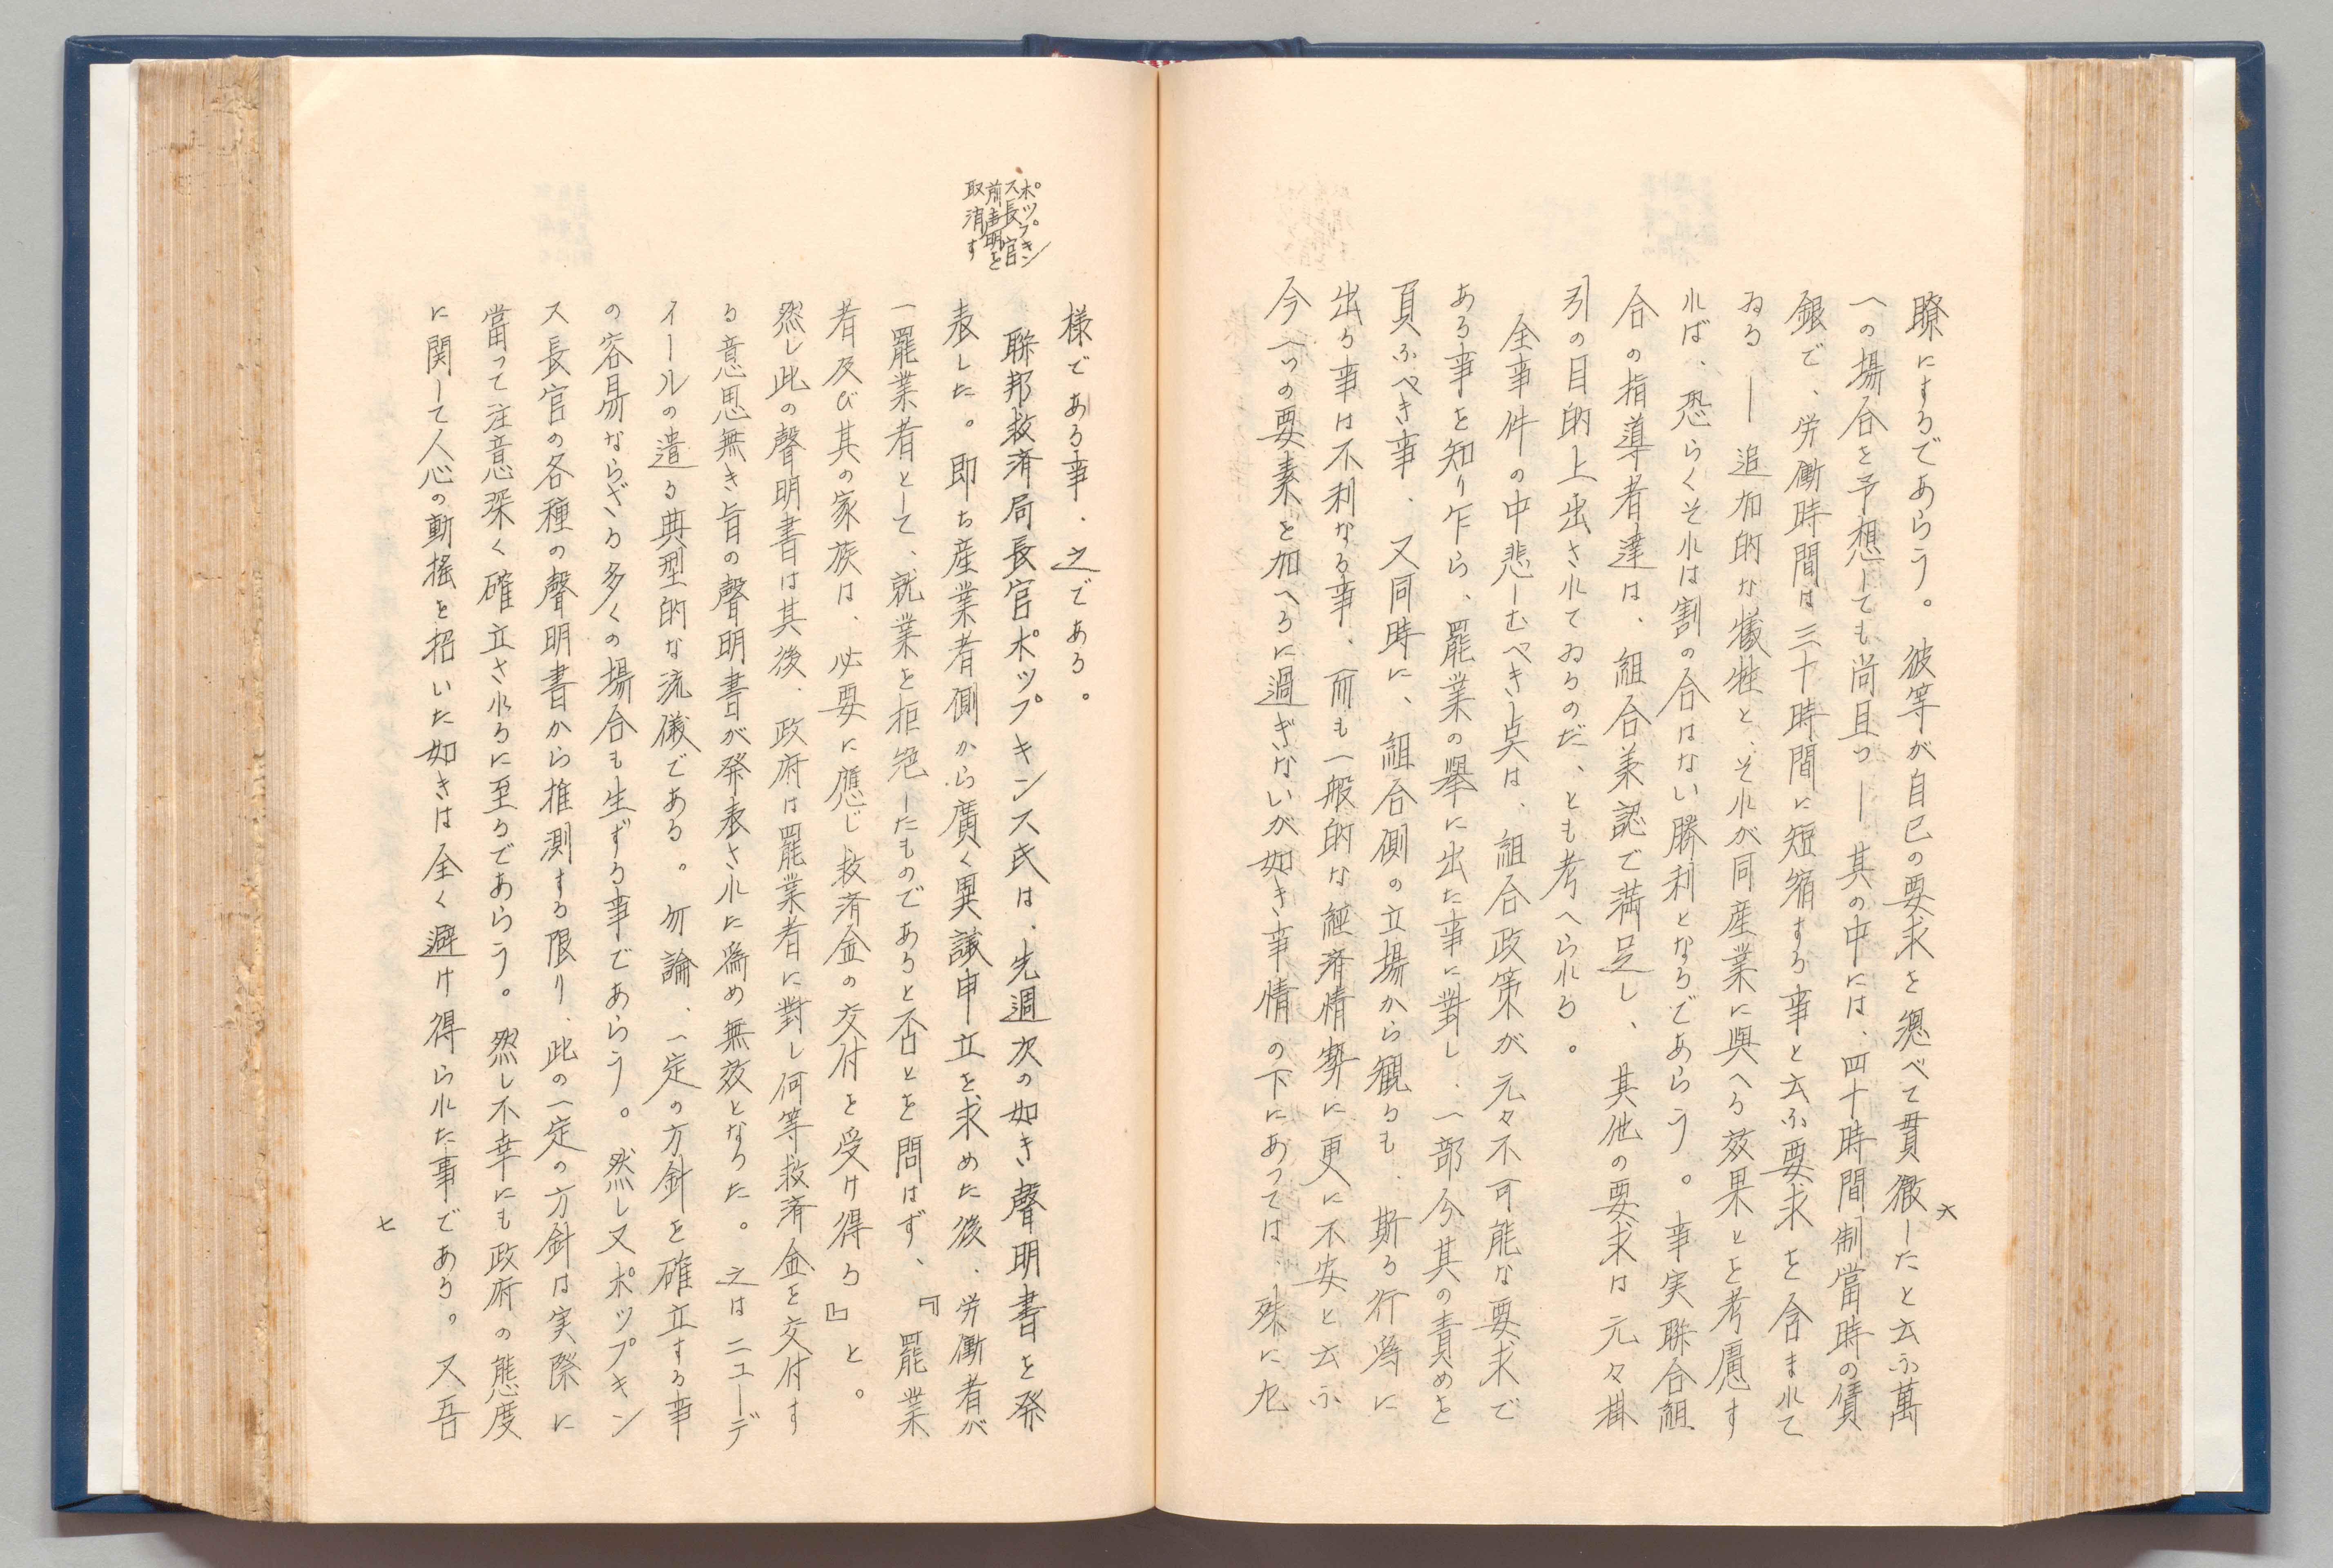 瞭にするであらう。彼等が自己の要求を總べて貫徹したと云ふ萬
一の場合を予想しても尚且つ—其の中には、四十時間制當時の賃
銀で、労働時間は三十時間に短縮する事と云ふ要求を含まれて
ゐる—追加的な犠牲と、それが同産業に與へる效果とを考慮す
れば、恐らくそれは割の合はない勝利となるであらう。事実聯合組
合の指導者達は、組合承認で満足し、其他の要求は元々掛
引の目的上出されてゐるのだ、とも考へられる。
全事件の中悲しむべき点は、組合政策が元々不可能な要求で
ある事を知り乍ら、罷業の擧に出た事に對し、一部分其の責めを
負ふべき事、又同時に、組合側の立場から観るも、斯る行為に
出る事は不利なる事、而も一般的な経済情勢に更に不安と云ふ
今一つの要素を加へるに過ぎないが如き事情の下にあつては、殊に尤
六
様である事、之である。
ポップキン
ス長官
前声明を
取消す
聯邦救済局長官ポップキンス氏は、先週次の如き聲明書を発
表した。即ち産業者側から廣く異議申立を求めた後、労働者が
一罷業者として、就業を拒絶したものであると否とを問はず、『罷業
者及び其の家族は、必要に應じ救済金の交付を受け得る』と。
然し此の聲明書は其後、政府は罷業者に對し何等救済金を交付す
る意思無き旨の聲明書が発表された為め無效となつた。之はニューデ
イールの遣る典型的な流儀である。勿論、一定の方針を確立する事
の容易ならざる多くの場合も生ずる事であらう。然し又ポップキン
ス長官の各種の聲明書から推測する限り、此の一定の方針は実際に
當つて注意深く確立されるに至るであらう。然し不幸にも政府の態度
に関して人心の動揺を招いた如きは全く避け得られた事である。又吾
七